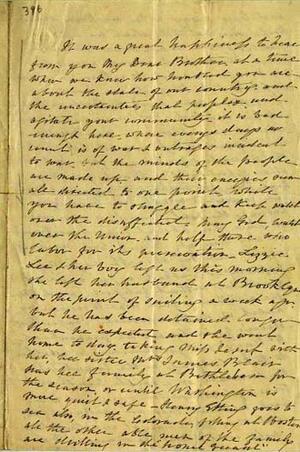 396
It was a great happiness to hear
from you My Dear Brother at a time
when we know how troubled you are
about the state of our country, and
the uncertainties that perplex and
agitate your community it is bad
enough here, where every days ac
count is of war & outrages incident
to war, but the minds of the people
are made up and their energies
are devoted to one point while
you have to struggle and keep watch
over the disaffected. May God watch
over the Union, and help those who
labor for its preservation. Lizzie
Lee & her boy left us this morning
she left her husband at Brooklyn
on the point of sailing a week ago
but he has been detained longer
than he expected and she went
home to day, taking Miss with
her, her sister Mrs Blair
has her family at Brattleboro for
the season, or until Washington is
more quiet & safe - Henry Etting goes to
sea also, in the Colorado, & May at Boston
all the other able men of the family
are drilling in the "home guard"